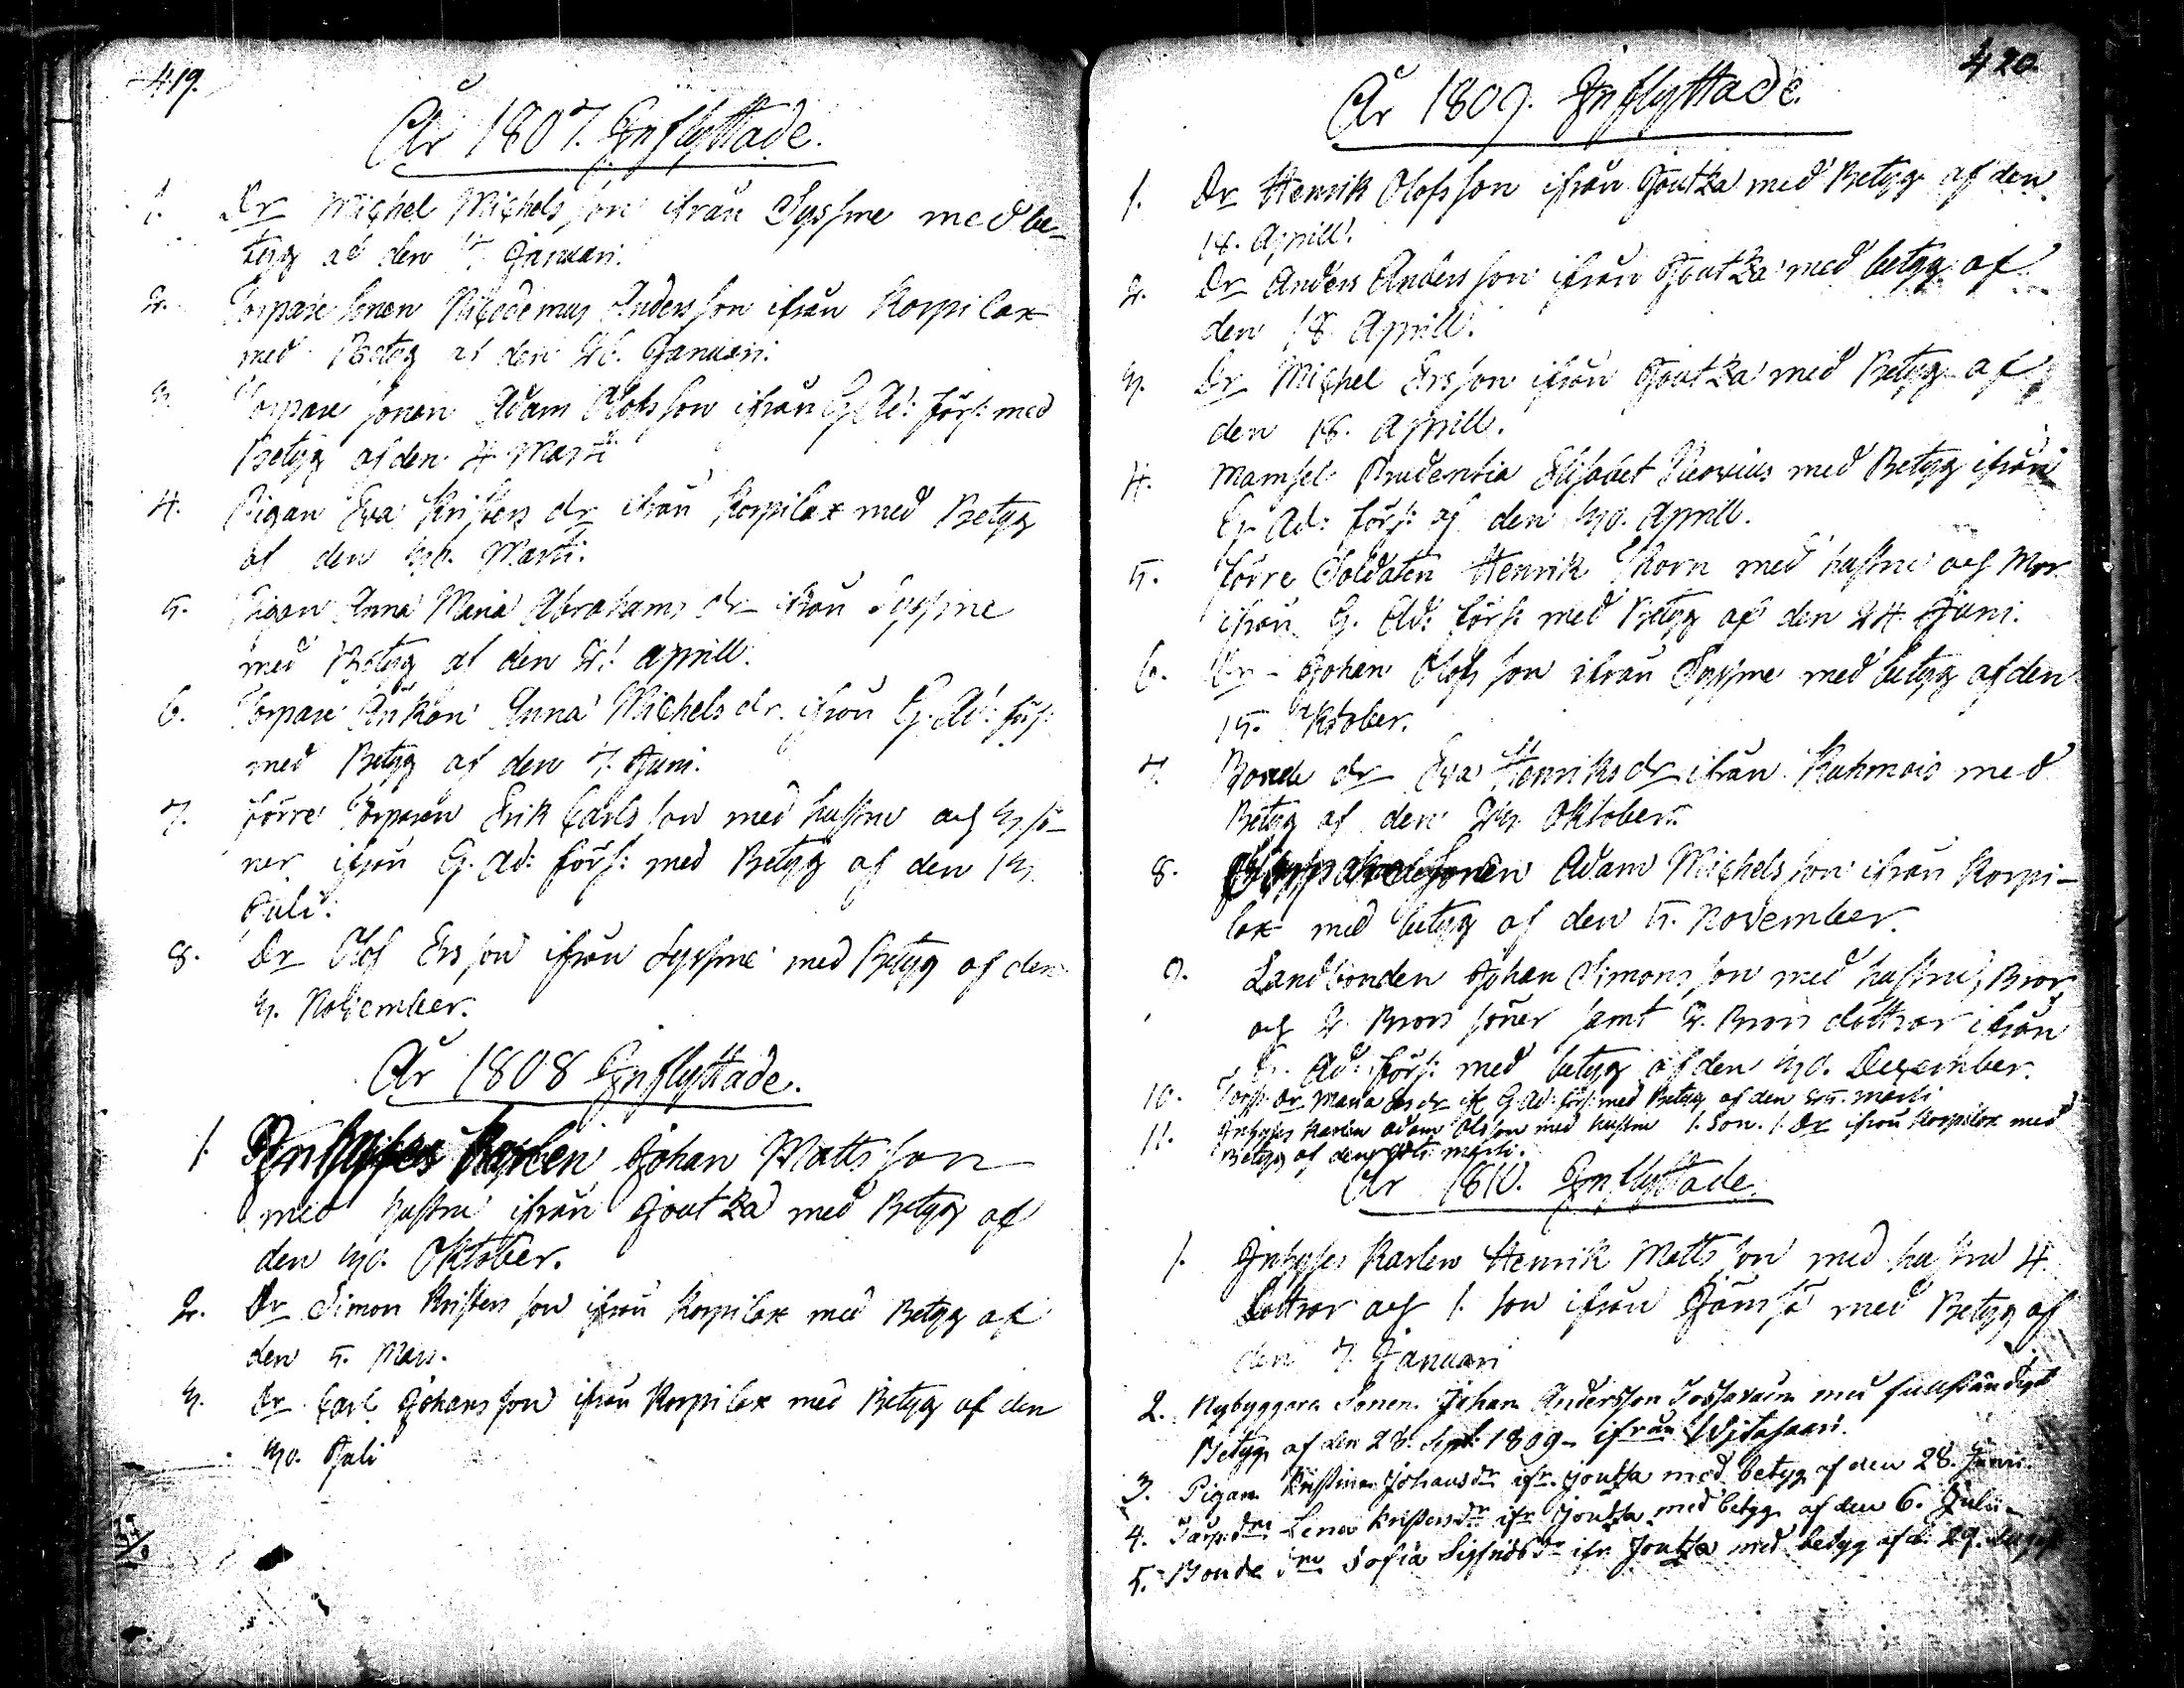 419.
År 1807. Inflyttade.
1. Dr Michel Michels son ifrån Syssme med be-
tyg af den 17. Januari.
2. Torpare sonen Nicodemus Anders son ifrån Korpilax
med Betyg af den 26. Januari.
3. Torpare sonen Adam Olofs son ifrån G. Ad: förs: med
Betyg af den 4 Marti
4. Pigan Eva Kristers dr ifrån Korpilax med Betyg
af den 30. Marti.
5. Pigan Anna Maria Abrahams dr ifrån Syssme
med Betyg af den 21 aprill.
6. Torpare Änkan Anna Michels dr. ifrån G. Ad: förs:
med Betyg af den 7. Juni.
7. förre Torparen Erik Carls son med hustru och 3 sö-
ner ifrån G. Ad: förs: med Betyg af den 13.
Juli.
8. Dr Olof Ers son ifrån Syssme med Betyg af den
3. November.
År 1808 Inflyttade.
1. Inhyses Karlen Johan Matts son
med hustru ifrån Joutza med Betyg af
den 30. Oktober.
2. Dr Simon Kristers son ifrån Korpilax med Betyg af
den 5. Mars.
3. Dr Carl Johans son ifrån Korpilax med Betyg af den
30. Juli
420.
År 1809. Inflyttade.
1. Dr Henrik Olofs son ifrån Joutza med Betyg af den
18. Aprill.
2. Dr Anders Anders son ifrån Joutza med betyg af
den 18. Aprill.
3. Dr Michel Ers son ifrån Joutza med Betyg af
den 18. Aprill.
4. Mamsel Prudentia Elisabet med Betyg ifrån
G. Ad: förs: af den 30. Aprill.
5. förre Soldaten Henrik Thorn med hustru och Mor
ifrån G. Ad: förs: med Betyg af den 24. Juni.
6. Dr Johan Olofs son ifrån Syssme med betyg af den
15. Oktober.
7. Bonde dr Eva Henriks dr ifrån Kuhmois med
Betyg af den 23. Oktober.
8. sonen Adam Michels son ifrån Korpi-
lax med betyg af den 5. November.
9. Landbonden Johan Simons son med hustru, Bror,
och 2. Brors söner samt 2. Brors döttrar ifrån
G. Ad: förs: med betyg af den 30. December.
10. Torp: dr Maria Ers dr if G. Ad: förs: med Betyg af den 25. marti
11. Inhyses Karlen Adam Ols son med hustru 1. Son. 1. Dr ifrån Korpilax med
Betyg af den marti.
År 1810. Inflyttade.
1. Inhyses Karlen Henrik Matts son med hustru 4
Döttrar och 1. son ifrån Jämsä med Betyg af
den 7. Januari
2. Nybyggare Sonen Johan Andersson med fullständigt
Betyg af den 28. Sept: 1809 - ifrån Witasaari.
3. Pigan Kristina Johansdr ifr. Joutsa med betyg af den 28. Junii.
4. Torp. drn Lena Kristersdr ifr Joutsa med betyg af den 6. Julii
5. Bonde drn Sofia Sigfridsdr ifr Joutsa med betyg af d. 29. August